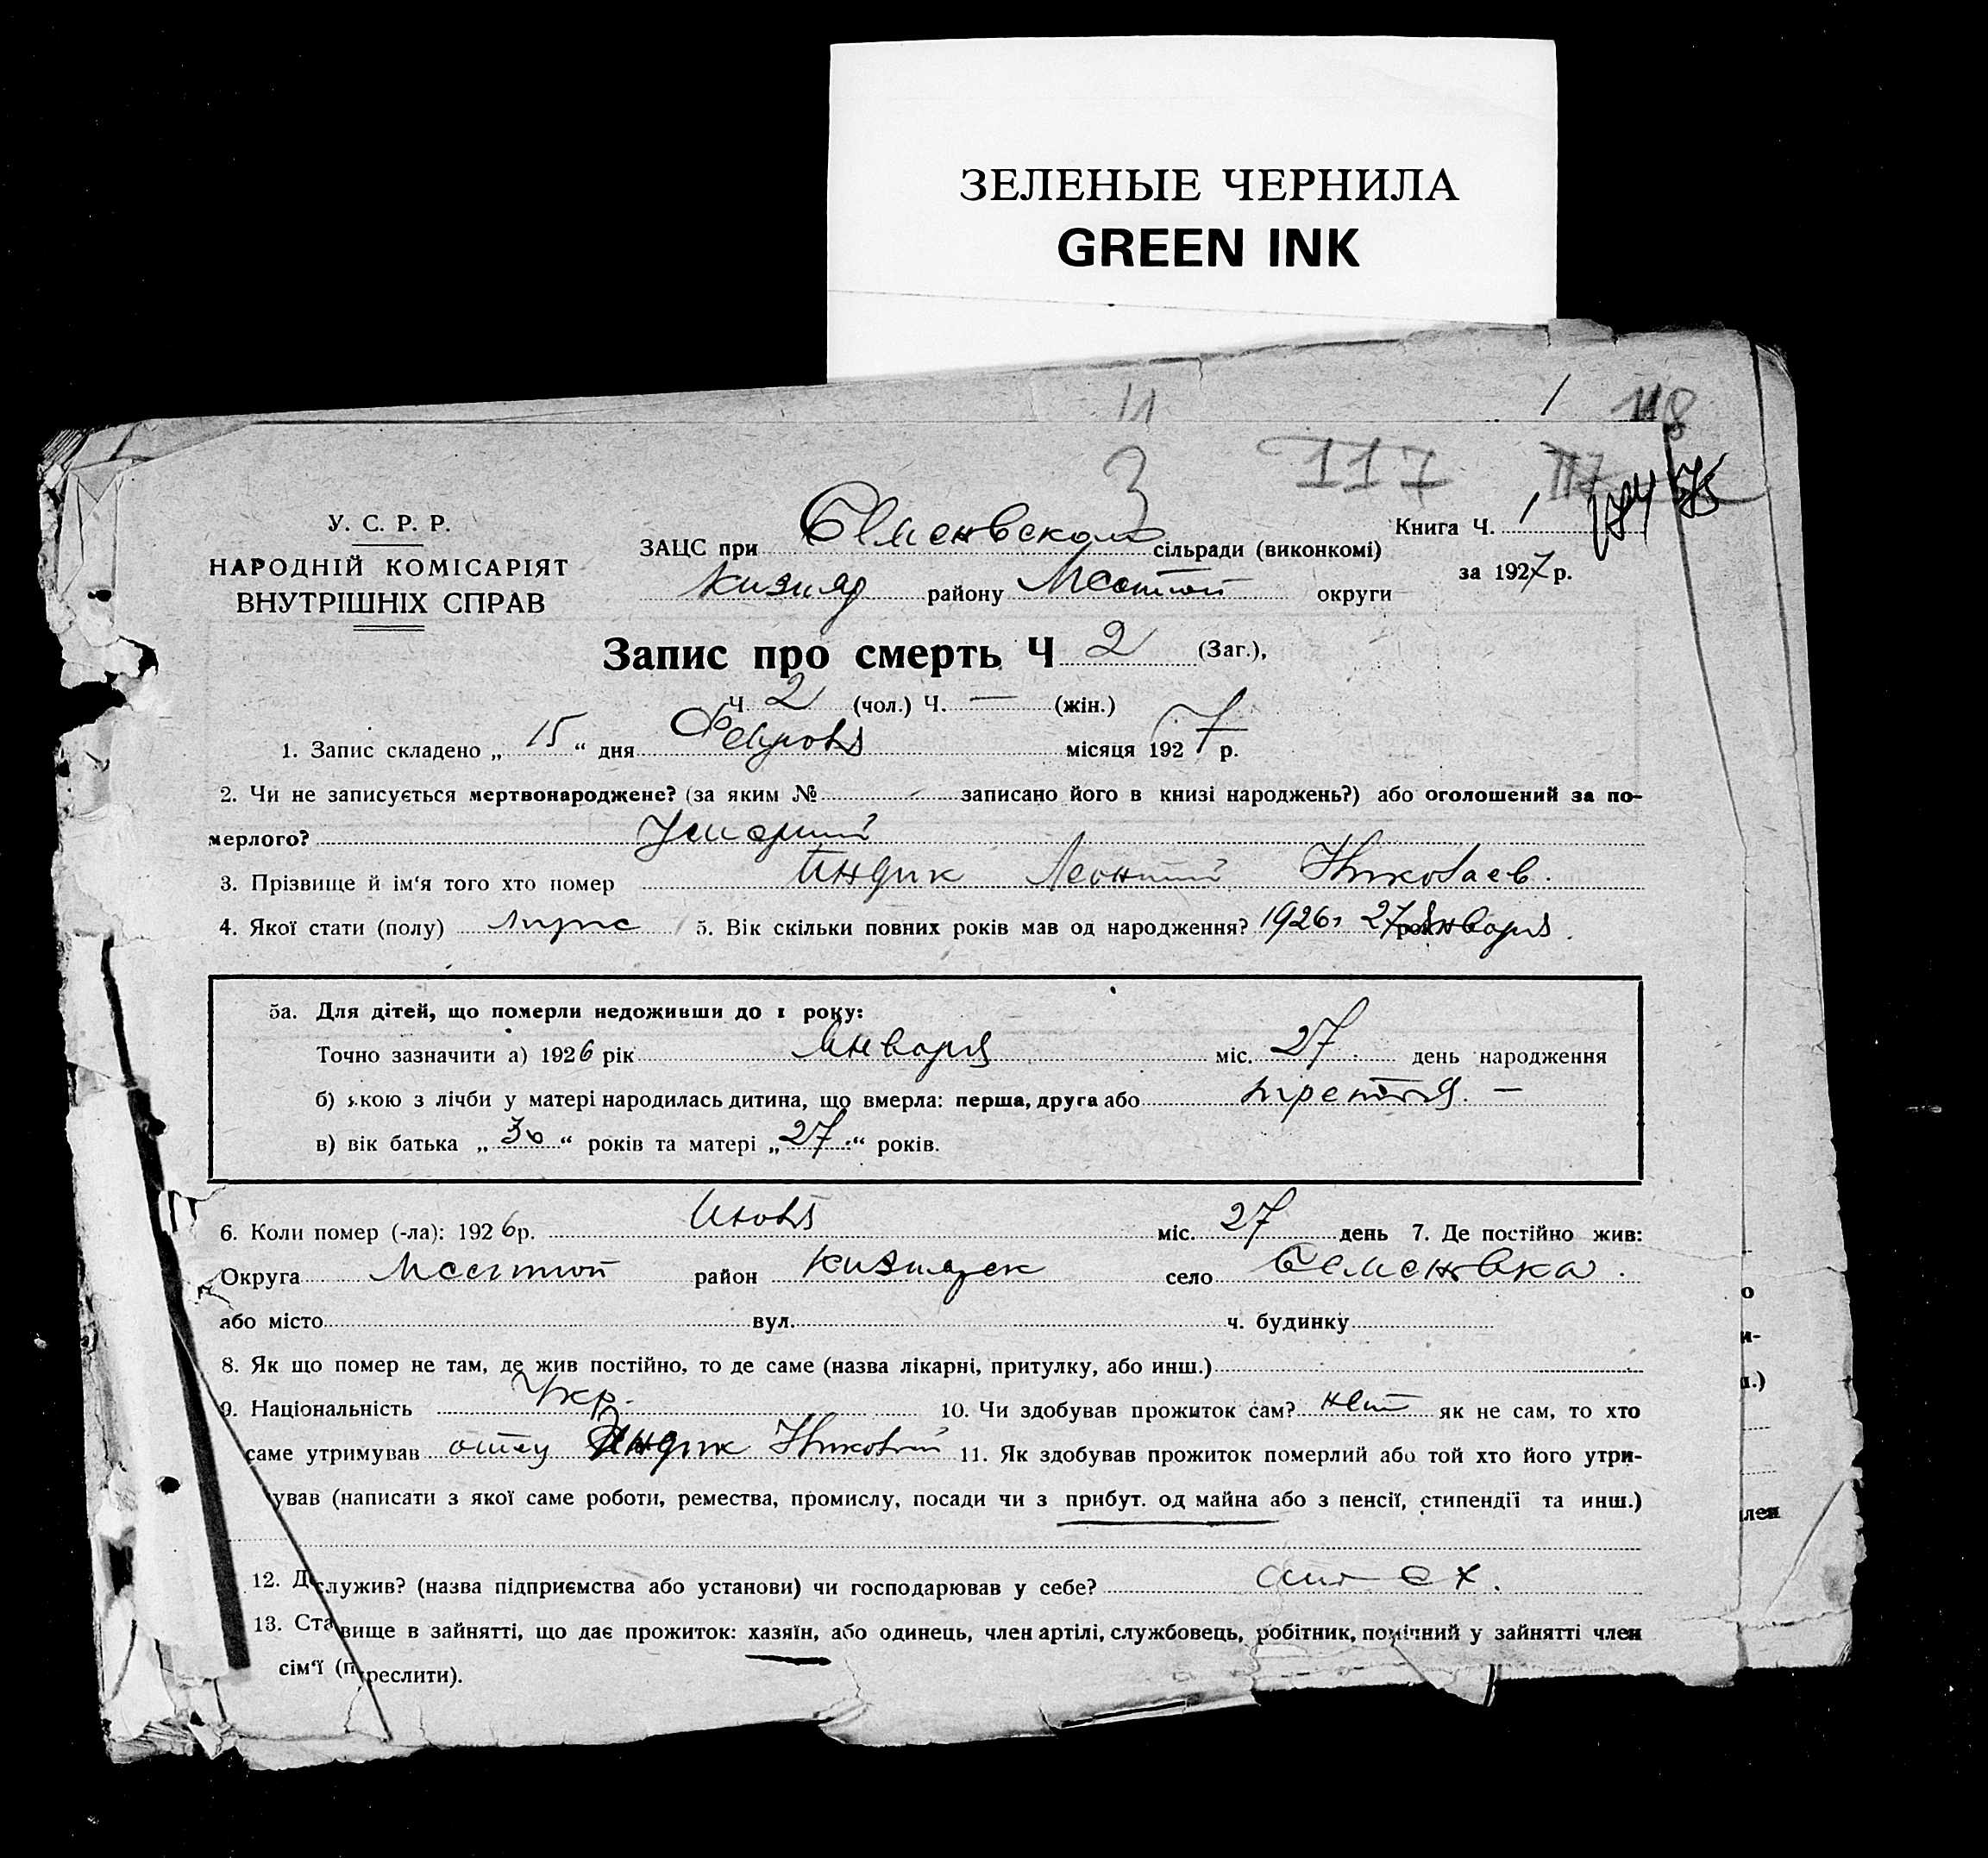 ЗЕЛЕНЫЕ ЧЕРНИЛА
GREEN INK
11 1 118
3 117 117
У. С. Р. Р.
НАРОДНІЙ КОМІСАРІЯТ
ВНУТРІШНІХ СПРАВ
ЗАЦС при Семеновском сільради (виконкомі)
Книга Ч. 1
за 1927 р.
району округи
Запис про смерть Ч 2 (Заг.),
Ч 2 (чол.) Ч. — (жін.)
1. Запис складено „ 15 “ дня Февроля місяця 1927 р.
2. Чи не записується мертвонароджене? (за яким № записано його в книзі народжень?) або оголошений за по-
мерлого? Умерший
3. Прізвище й ім‘я того хто помер Индик Леонтий Николаев.
4. Якої стати (полу) 5. Вік скільки повних років мав од народження? 1926 г 27 января.
5а. Для дітей, що померли недоживши до 1 року:
Точно зазначити а) 1926 рік Января міс. 27 день народження
б) якою з лічби у матері народилась дитина, що вмерла: перша, друга або третья. —
в) вік батька „ 30 “ років та матері „ 27 “ років.
6. Коли помер (-ла): 1926 р. Июля міс. 27 день 7. Де постійно жив:
Округа район село Семеновка.
або місто вул. ч. будинку
8. Як що помер не там, де жив постійно, то де саме (назва лікарні, притулку, або инш.)
9. Національність Укр. 10. Чи здобував прожиток сам? нет як не сам, то хто
саме утримував отец Индик Николай 11. Як здобував прожиток померлий або той хто його утри-
ував (написати з якої саме роботи, ремества, промислу, посади чи з прибут. од майна або з пенсії, стипендії та инш.)
12. Де служив? (назва підприємства або установи) чи господарював у себе? с х.
13. Становище в зайнятті, що дає прожиток: хазяїн, або одинець, член артілі, службовець, робітник, помічний у зайнятті член
сім‘ї (підкреслити).